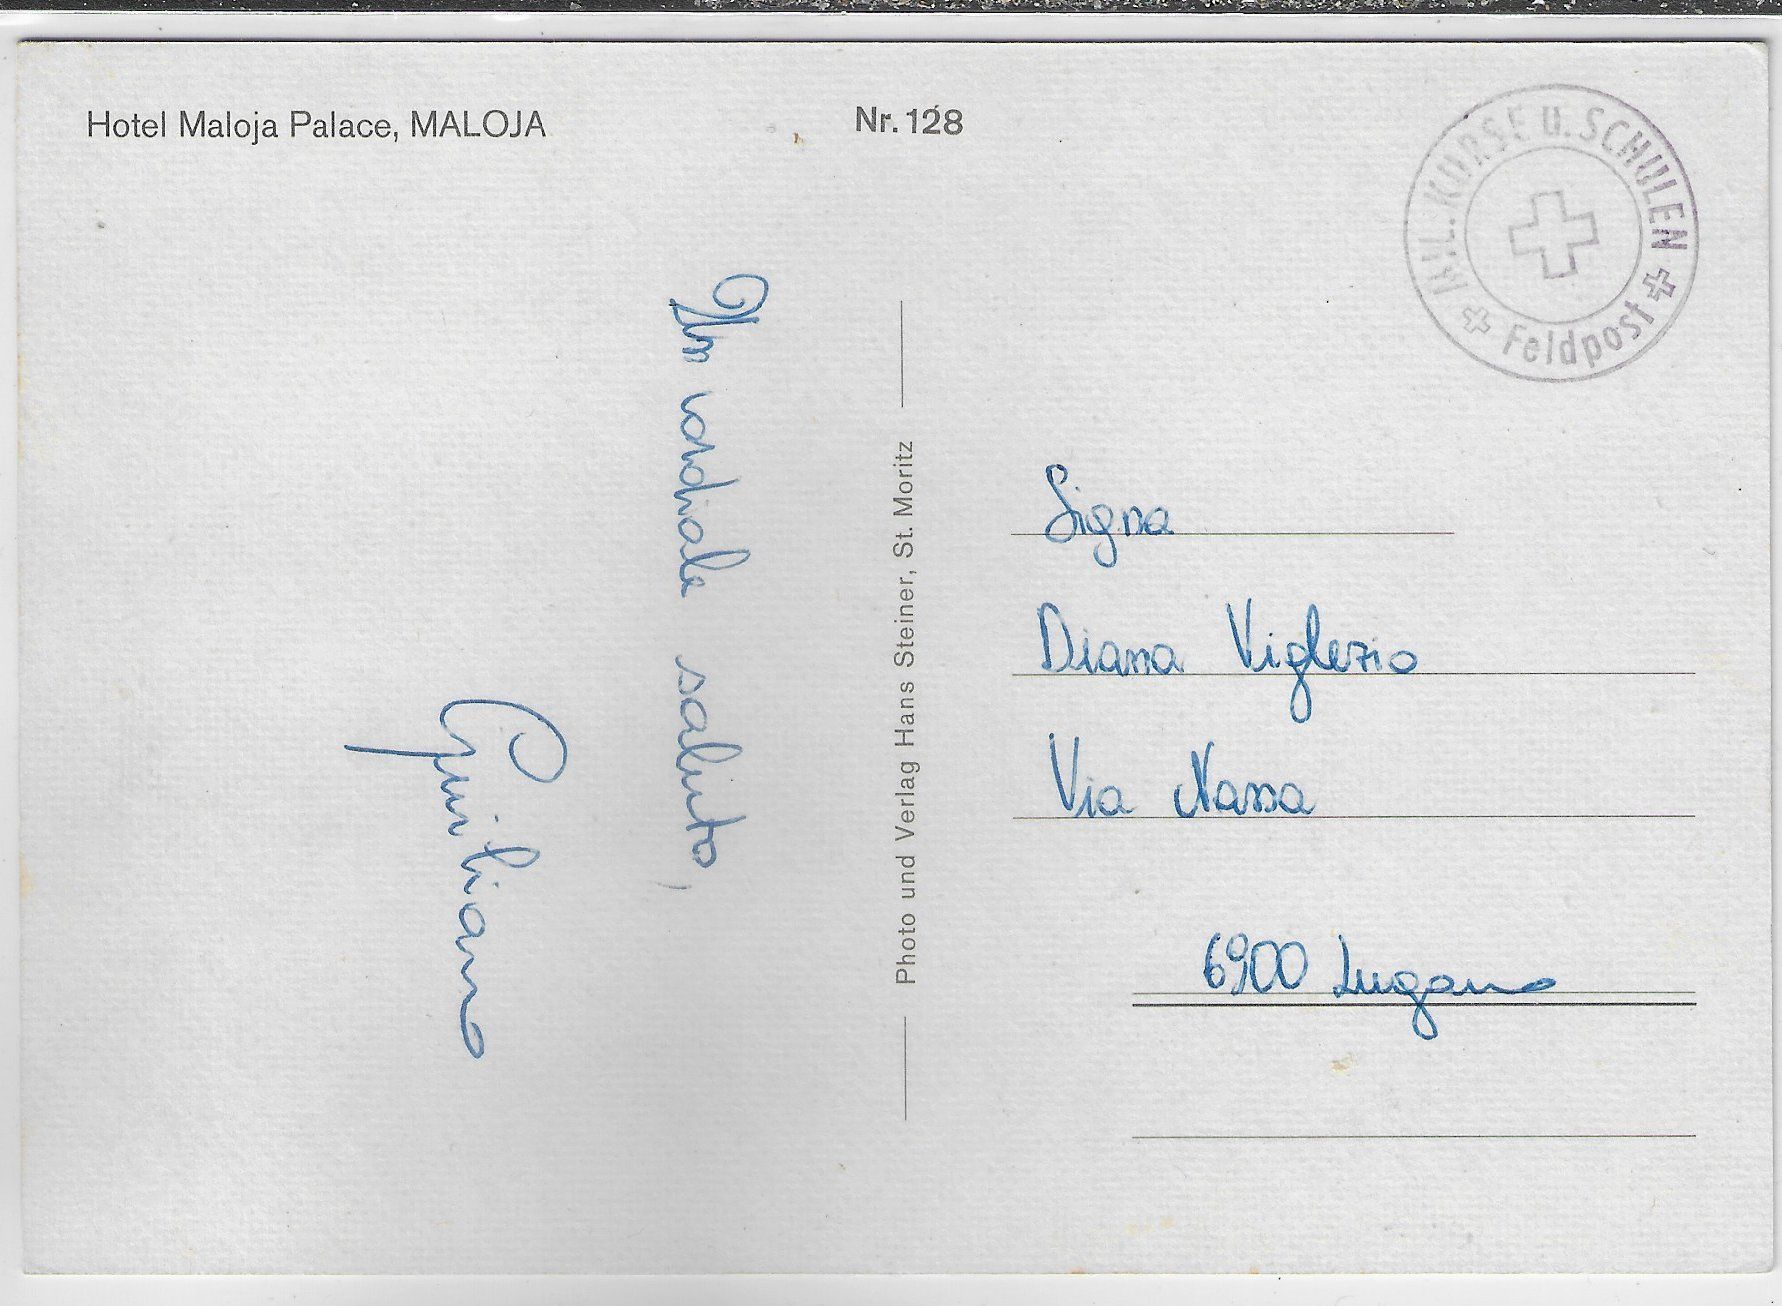 Hotel Maloja Palace, MALOJA
Nr. 128
MIL. KURSE U. SCHULEN
Feldpost
Un cordiale saluto,
Giuliano
Photo und Verlag Hans Steiner, St. Moritz
Signa
Diana Viglezio
Via Nassa
6900 Lugano